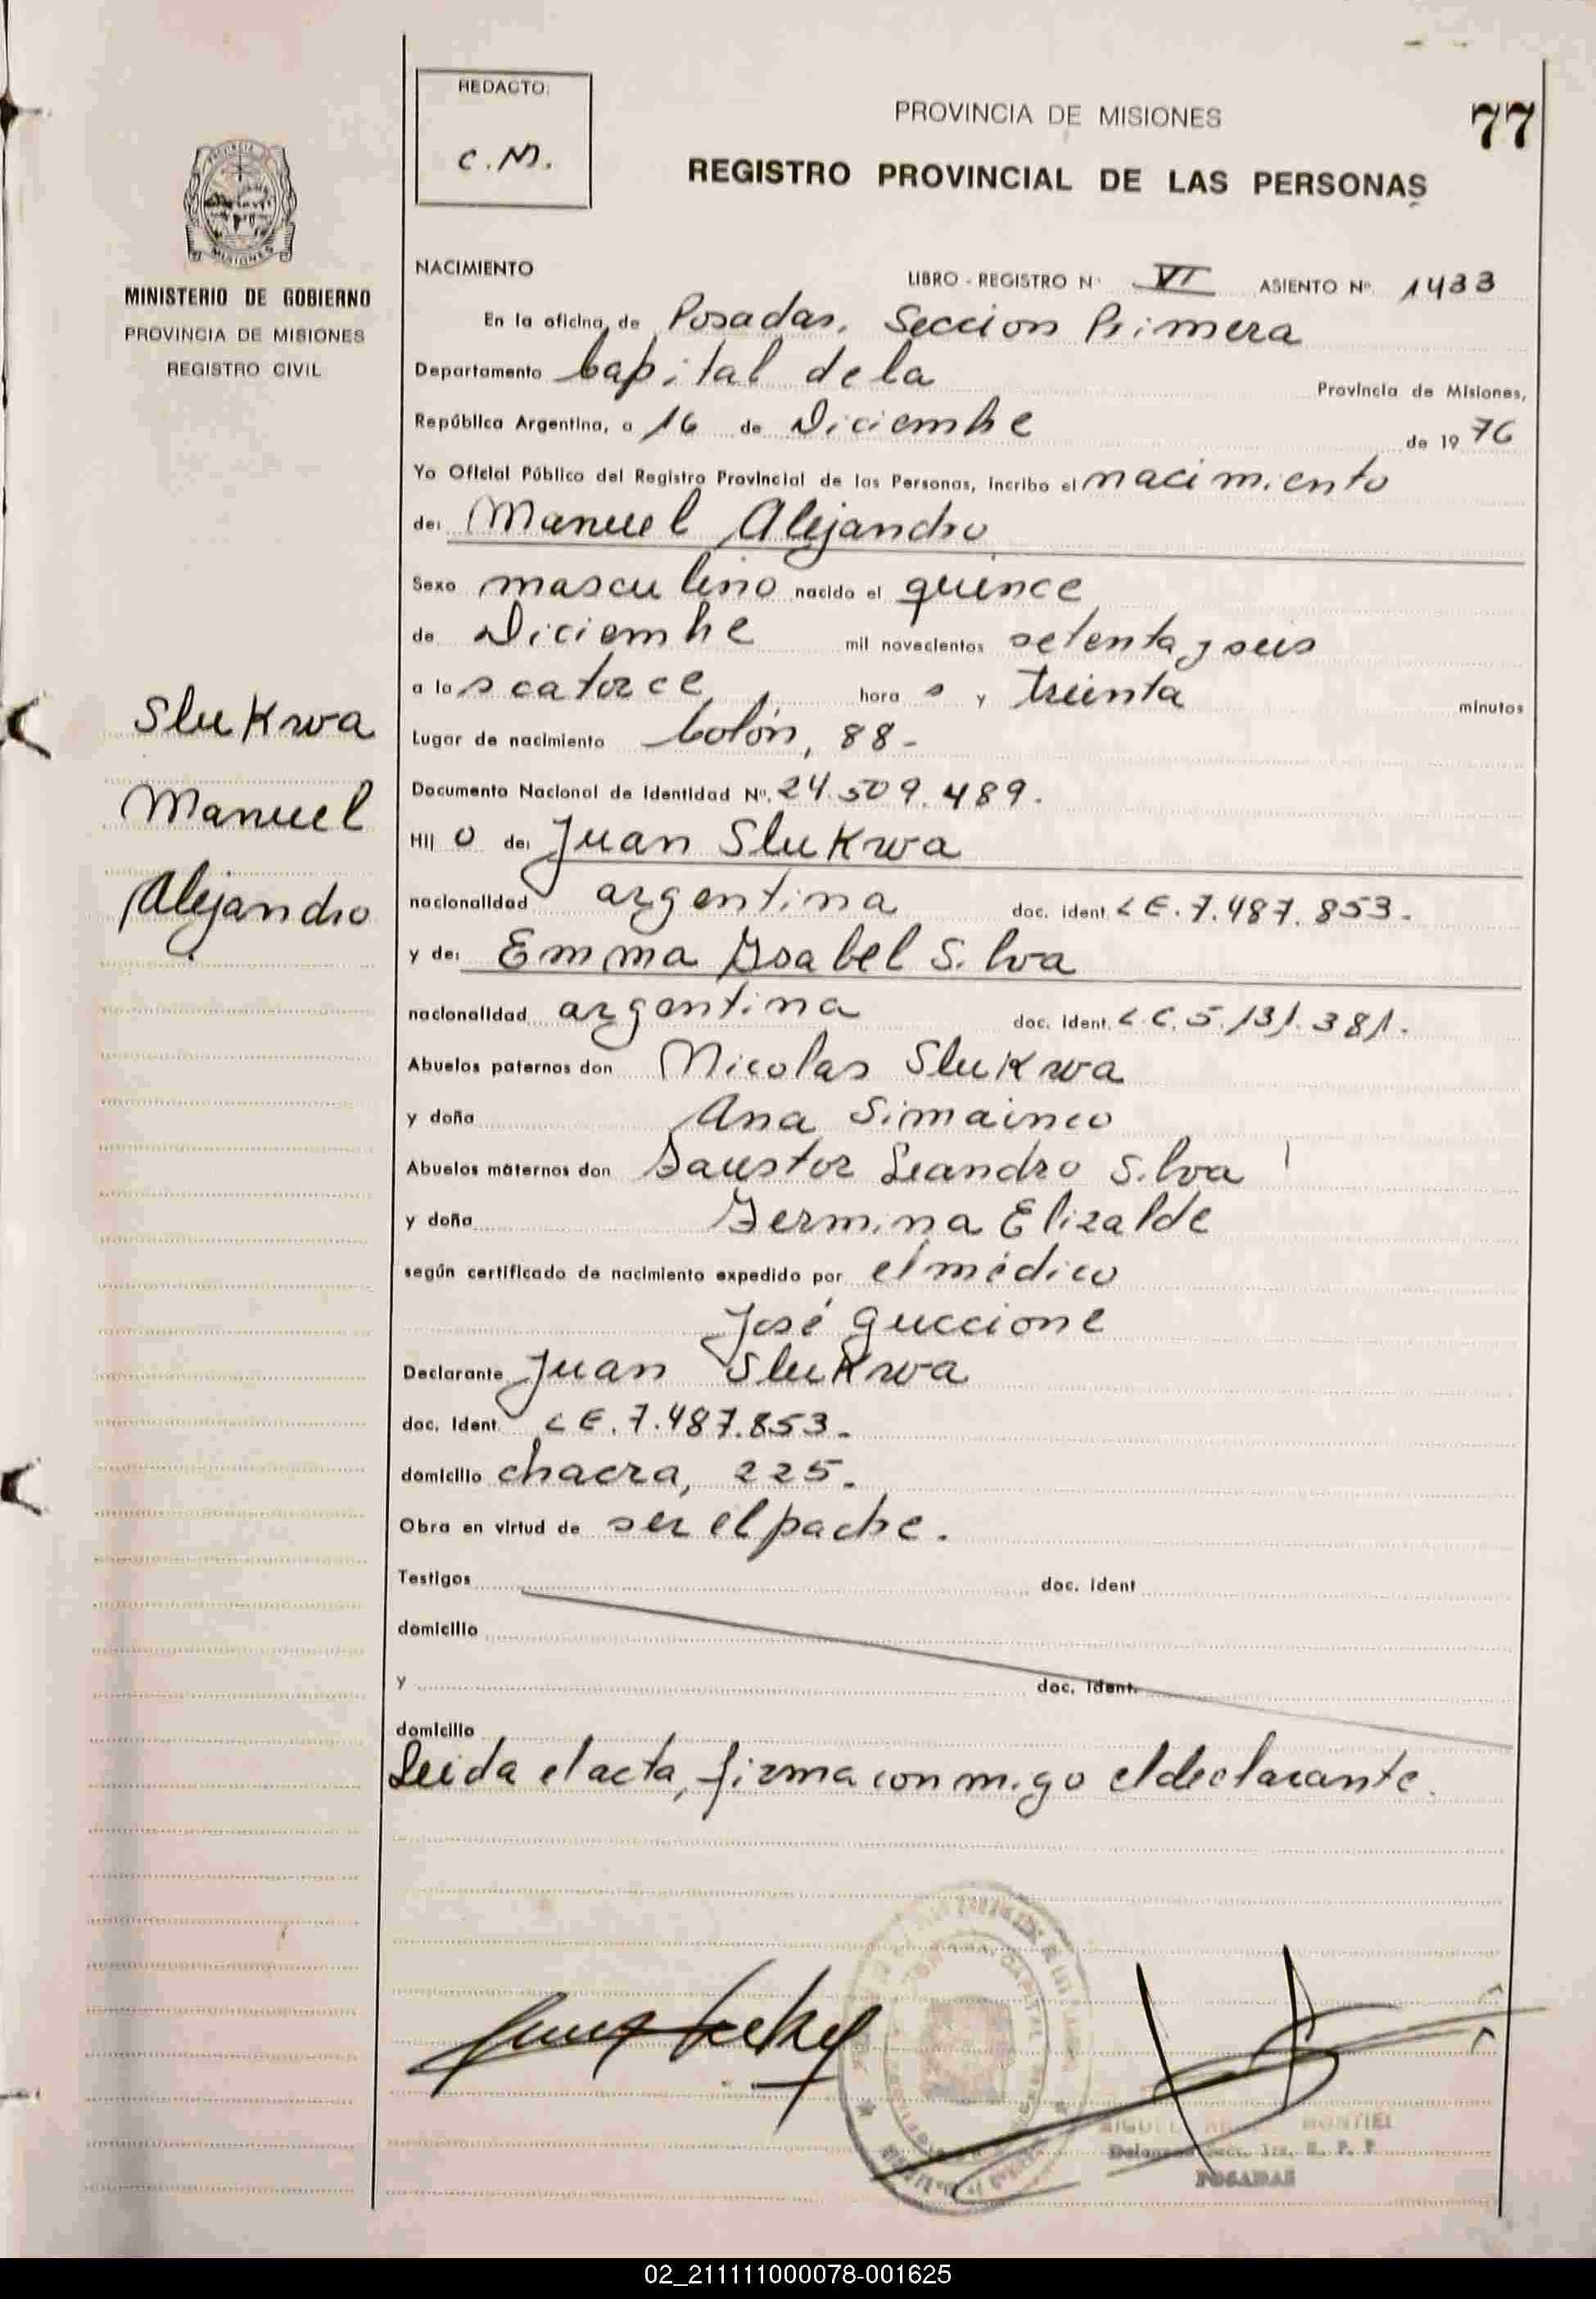 REDACTO:
C.M.
PROVINCIA DE MISIONES
77
REGISTRO PROVINCIAL DE LAS PERSONAS
MINISTERIO DE GOBIERNO
PROVINCIA DE MISIONES
REGISTRO CIVIL
NACIMIENTO
LIBRO - REGISTRO Nº VI ASIENTO Nº 1433
En la oficina de Posadas, Seccion Primera
Departamento Capital de la Provincia de Misiones,
República Argentina, a 16 de Diciembre de 1976
Yo Oficial Público del Registro Provincial de las Personas, incribo el nacimiento
de: Manuel Alejandro
Sexo masculino nacido el quince
de Diciembre mil novecientos setenta y seis
a las catorce horas y treinta minutos
Lugar de nacimiento Colón, 88-
Documento Nacional de Identidad Nº. 24.509.489.
Hijo de: Juan Slukwa
nacionalidad argentina doc. ident. L E. 7.487.853.
y de: Emma Ysabel Silva
nacionalidad argentina doc. ident. L.C. 5.131.381.
Abuelos paternos don Nicolas Slukwa
y doña Ana Simainco
Abuelos maternos don Faustor Leandro Silva
y doña Germina Elizalde
según certificado de nacimiento expedido por el médico
José Guccione
Declarante Juan Slukwa
doc. Ident. L E. 7.487.853.
domicilio chacra, 225.
Obra en virtud de ser el padre.
Testigos doc. ident
domicilio
y doc. ident.
domicilio
Leida el acta, firma conmigo el declarante.
Slukwa
Manuel
Alejandro
CAPITAL
MONTIEL
POSADAS
02_211111000078-001625